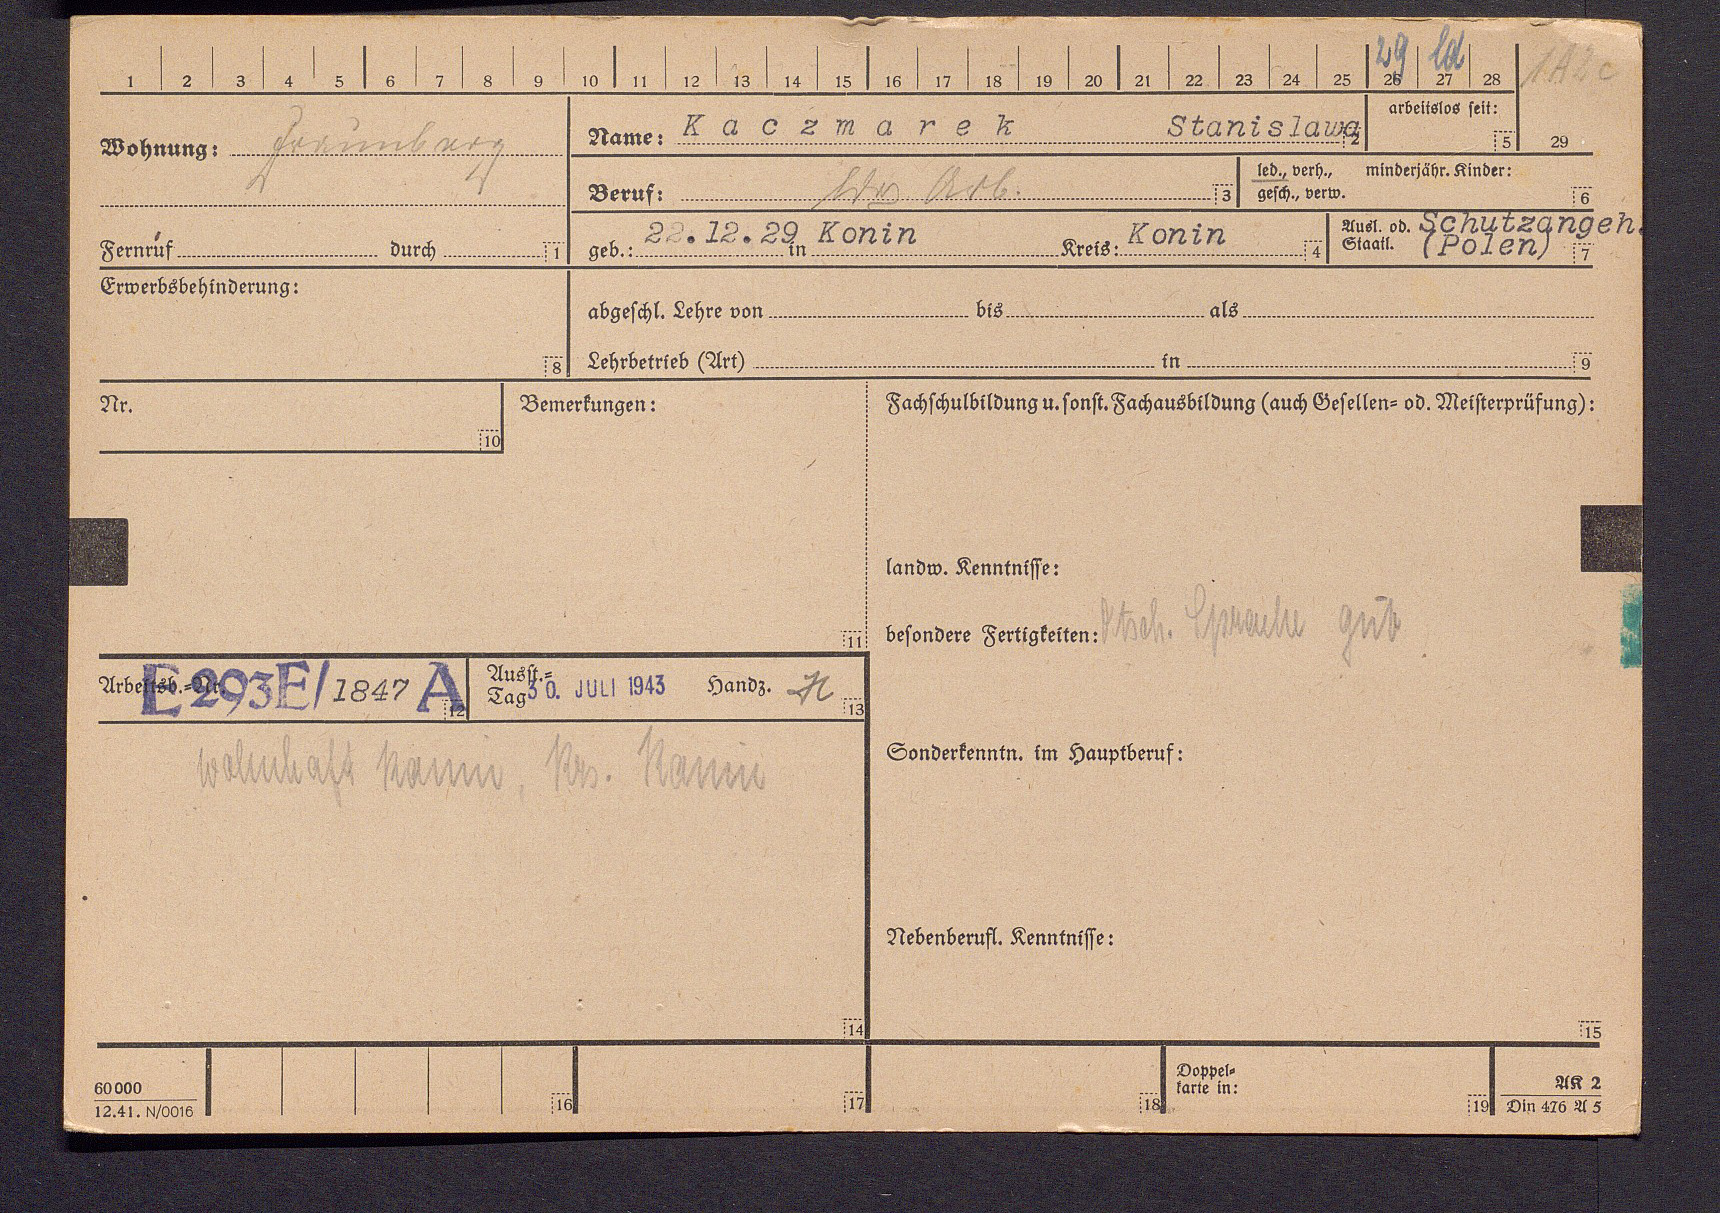 1 2 3 4 5 6 7 8 9 10 11 12 13 14 15 16 17 18 19 20 21 22 23 24 25 26 27 28
29 ld
1A2c
Wohnung:
Name: Kaczmarek Stanislawa 2
arbeitslos seit: 5
29
Beruf: ldw Arb. 3
led., verh., minderjähr. Kinder:
gesch., verw. 6
Fernruf durch 1
geb.: 22.12.29 in Konin Kreis: Konin 4
Ausl. od. Schutzangeh.
Staatl. (Polen) 7
Erwerbsbehinderung:
8
abgeschl. Lehre von bis als
Lehrbetrieb (Art) in 9
Nr.
10
Bemerkungen:
11
Fachschulbildung u. sonst. Fachausbildung (auch Gesellen= od. Meisterprüfung):
landw. Kenntnisse:
besondere Fertigkeiten: dtsch. Sprache gut
Arbeitsb.=Nr. E 293E/1847 A 12
Ausst.=
Tag 30. JULI 1943 Handz. 13
wohnhaft Konin, Krs. Konin
Sonderkenntn. im Hauptberuf:
Nebenberufl. Kenntnisse:
14
15
60000
12.41. N/0016
16 17 18
Doppel=
karte in:
19
AK 2
Din 476 A 5